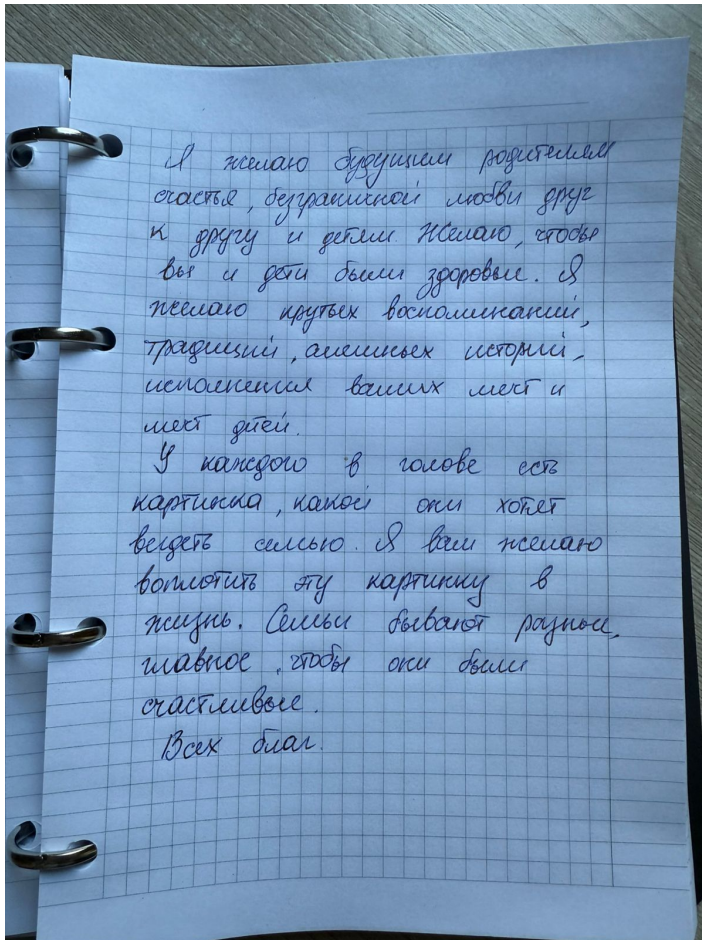 Я желаю будущим родителям
счастья, безграничной любви друг
к другу и детям. Желаю, чтобы
вы и дети были здоровые. Я
желаю крутых воспоминаний,
традиций, смешных историй,
исполнения ваших мечт и
мечт дтей.
У каждого в голове есть
картинка, какой они хотят
видеть семью. Я вам желаю
воплотить эту картинку в
жизнь. Семьи бывают разные,
главное, чтобы они были
счастливые.
Всех благ.